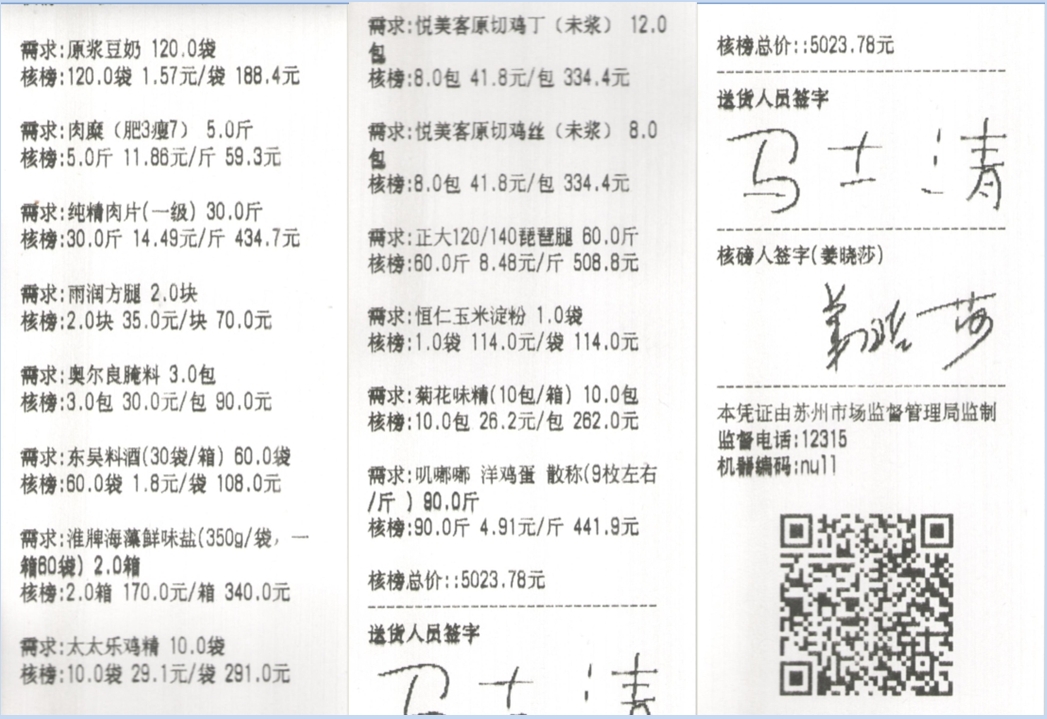 需求:原浆豆奶 120.0袋
核榜:120.0袋 1.57元/袋 188.4元
需求:肉糜（肥3瘦7） 5.0斤
核榜:5.0斤 11.86元/斤 59.3元
需求:纯精肉片(一级) 30.0斤
核榜:30.0斤 14.49元/斤 434.7元
需求:雨润方腿 2.0块
核榜:2.0块 35.0元/块 70.0元
需求:奥尔良腌料 3.0包
核榜:3.0包 30.0元/包 90.0元
需求:东吴料酒(30袋/箱) 60.0袋
核榜:60.0袋 1.8元/袋 108.0元
需求:淮牌海藻鲜味盐(350g/袋，一
箱60袋) 2.0箱
核榜:2.0箱 170.0元/箱 340.0元
需求:太太乐鸡精 10.0袋
核榜:10.0袋 29.1元/袋 291.0元
需求:悦美客原切鸡丁（未浆） 12.0
包
核榜:8.0包 41.8元/包 334.4元
需求:悦美客原切鸡丝（未浆） 8.0
包
核榜:8.0包 41.8元/包 334.4元
需求:正大120/140琵琶腿 60.0斤
核榜:60.0斤 8.48元/斤 508.8元
需求:恒仁玉米淀粉 1.0袋
核榜:1.0袋 114.0元/袋 114.0元
需求:菊花味精(10包/箱) 10.0包
核榜:10.0包 26.2元/包 262.0元
需求:叽嘟嘟 洋鸡蛋 散称(9枚左右
/斤 ) 90.0斤
核榜:90.0斤 4.91元/斤 441.9元
核榜总价::5023.78元
送货人员签字
马士清
核榜总价::5023.78元
送货人员签字
马士清
核磅人签字(姜晓莎)
姜晓莎
本凭证由苏州市场监督管理局监制
监督电话:12315
机器编码:null